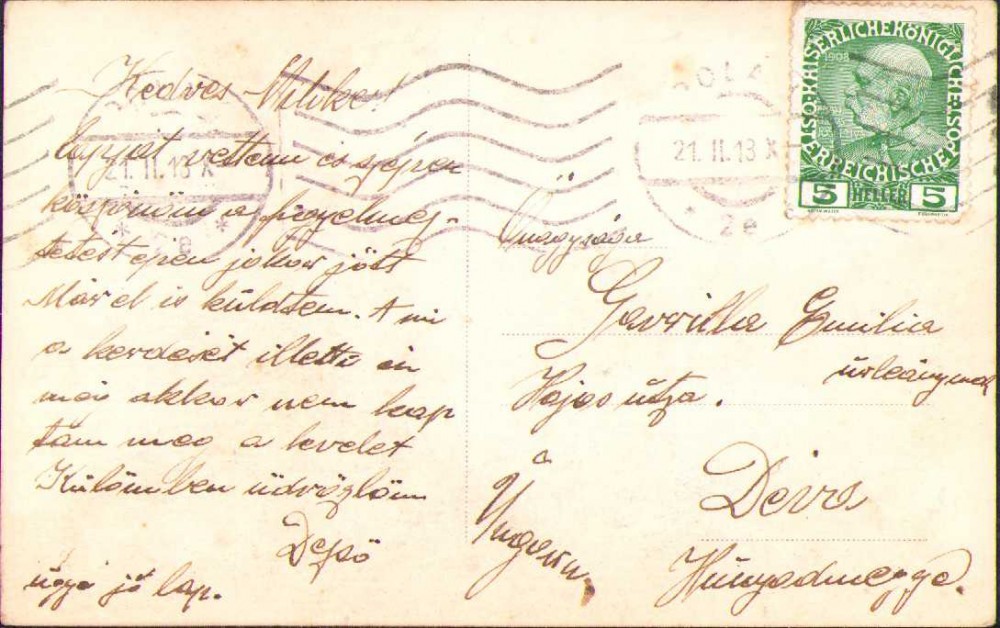 Kedves Milike!
lapját vettem és szépen
köszönöm a figyelmes-
tetest epen jokor jött
Már el is küldtem. A mi
a kerdését illetti én
már akkor nem kap
tam meg a levelet
Külömben üdvözlöm
Dezsö
ugye jó lap.
POLA
21.II.13 X
* 2e *
21.II.13 X
* 2e
KAISERLICHEKÖNIGLICHE
ÖSTERREICHISCHEPOST
1908
5 HELLER 5
Önagysága
Gavrilla Emilia
úrleánynak
Hajos útza.
Deva
Ungarn
Húnyadmegye.